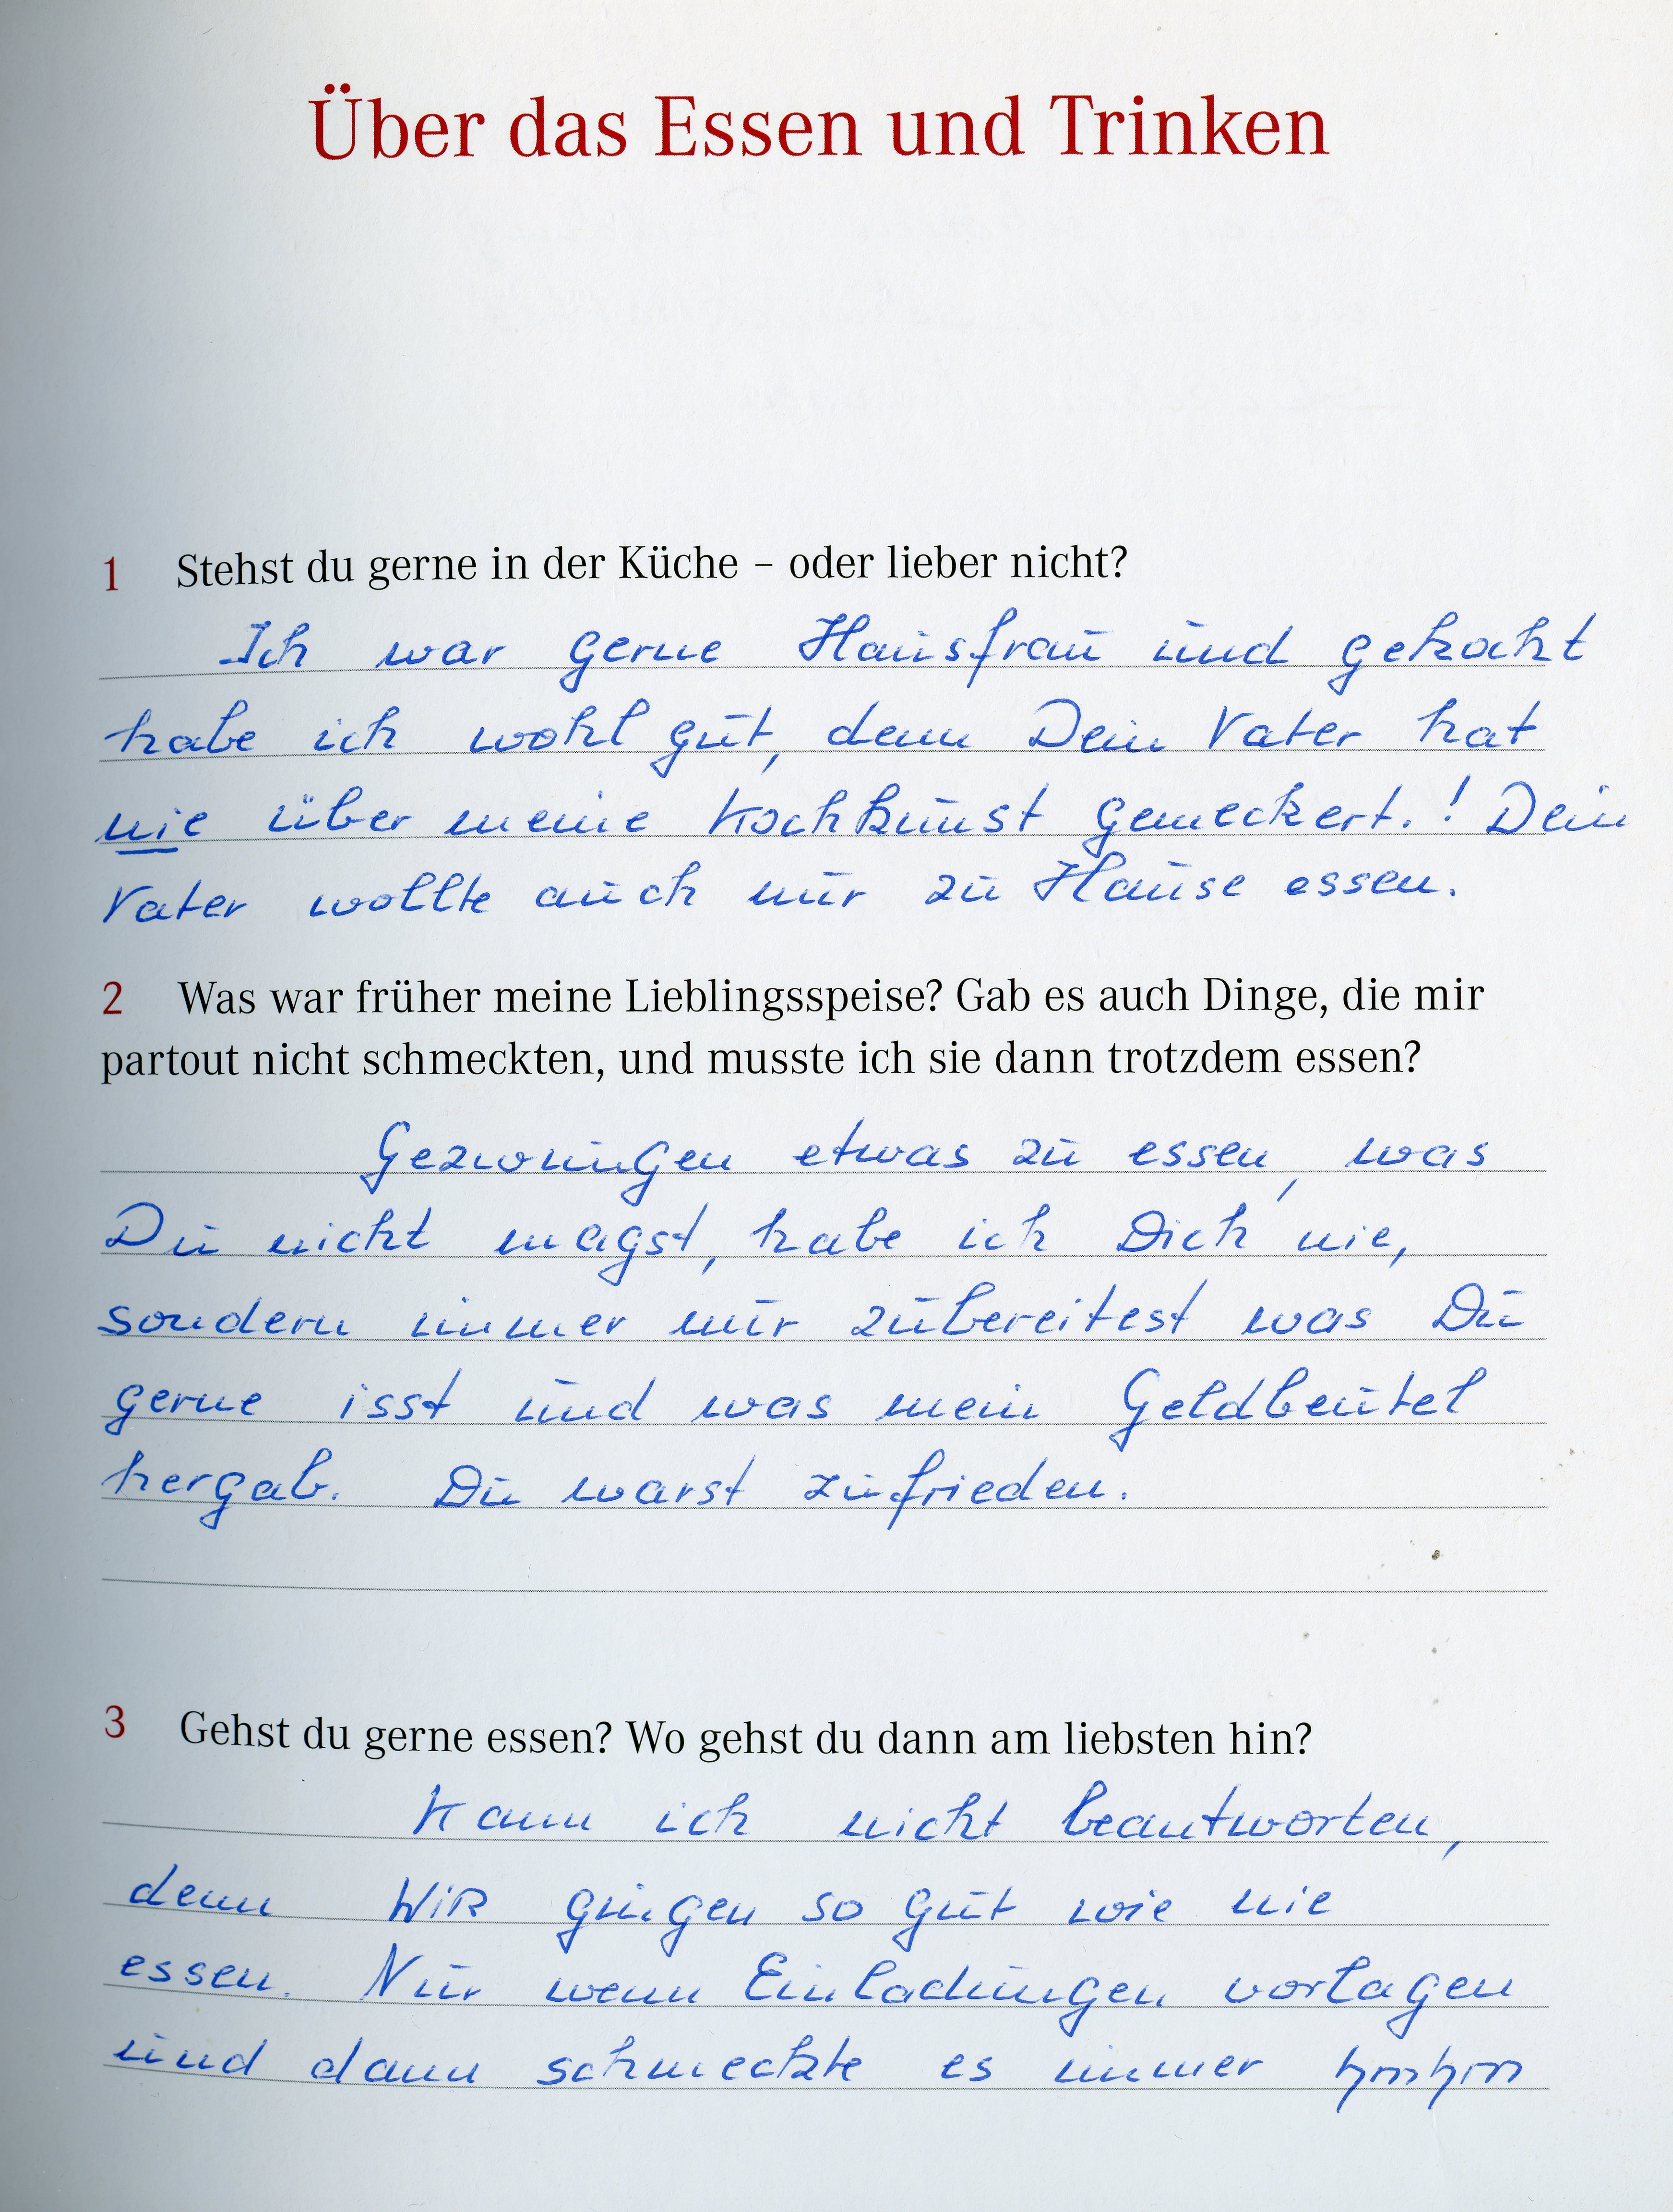 Über das Essen und Trinken
1 Stehst du gerne in der Küche – oder lieber nicht?
Ich war gerne Hausfrau und gekocht
habe ich wohl gut, denn Dein Vater hat
nie über meine Kochkunst gemeckert.! Dein
Vater wollte auch nur zu Hause essen.
2 Was war früher meine Lieblingsspeise? Gab es auch Dinge, die mir
partout nicht schmeckten, und musste ich sie dann trotzdem essen?
Gezwungen etwas zu essen, was
Du nicht magst, habe ich Dich nie,
sondern immer nur zubereitest was Du
gerne isst und was mein Geldbeutel
hergab. Du warst zufrieden.
3 Gehst du gerne essen? Wo gehst du dann am liebsten hin?
Kann ich nicht beantworten,
denn WiR gingen so gut wie nie
essen. Nur wenn Einladungen vorlagen
und dann schmeckte es immer